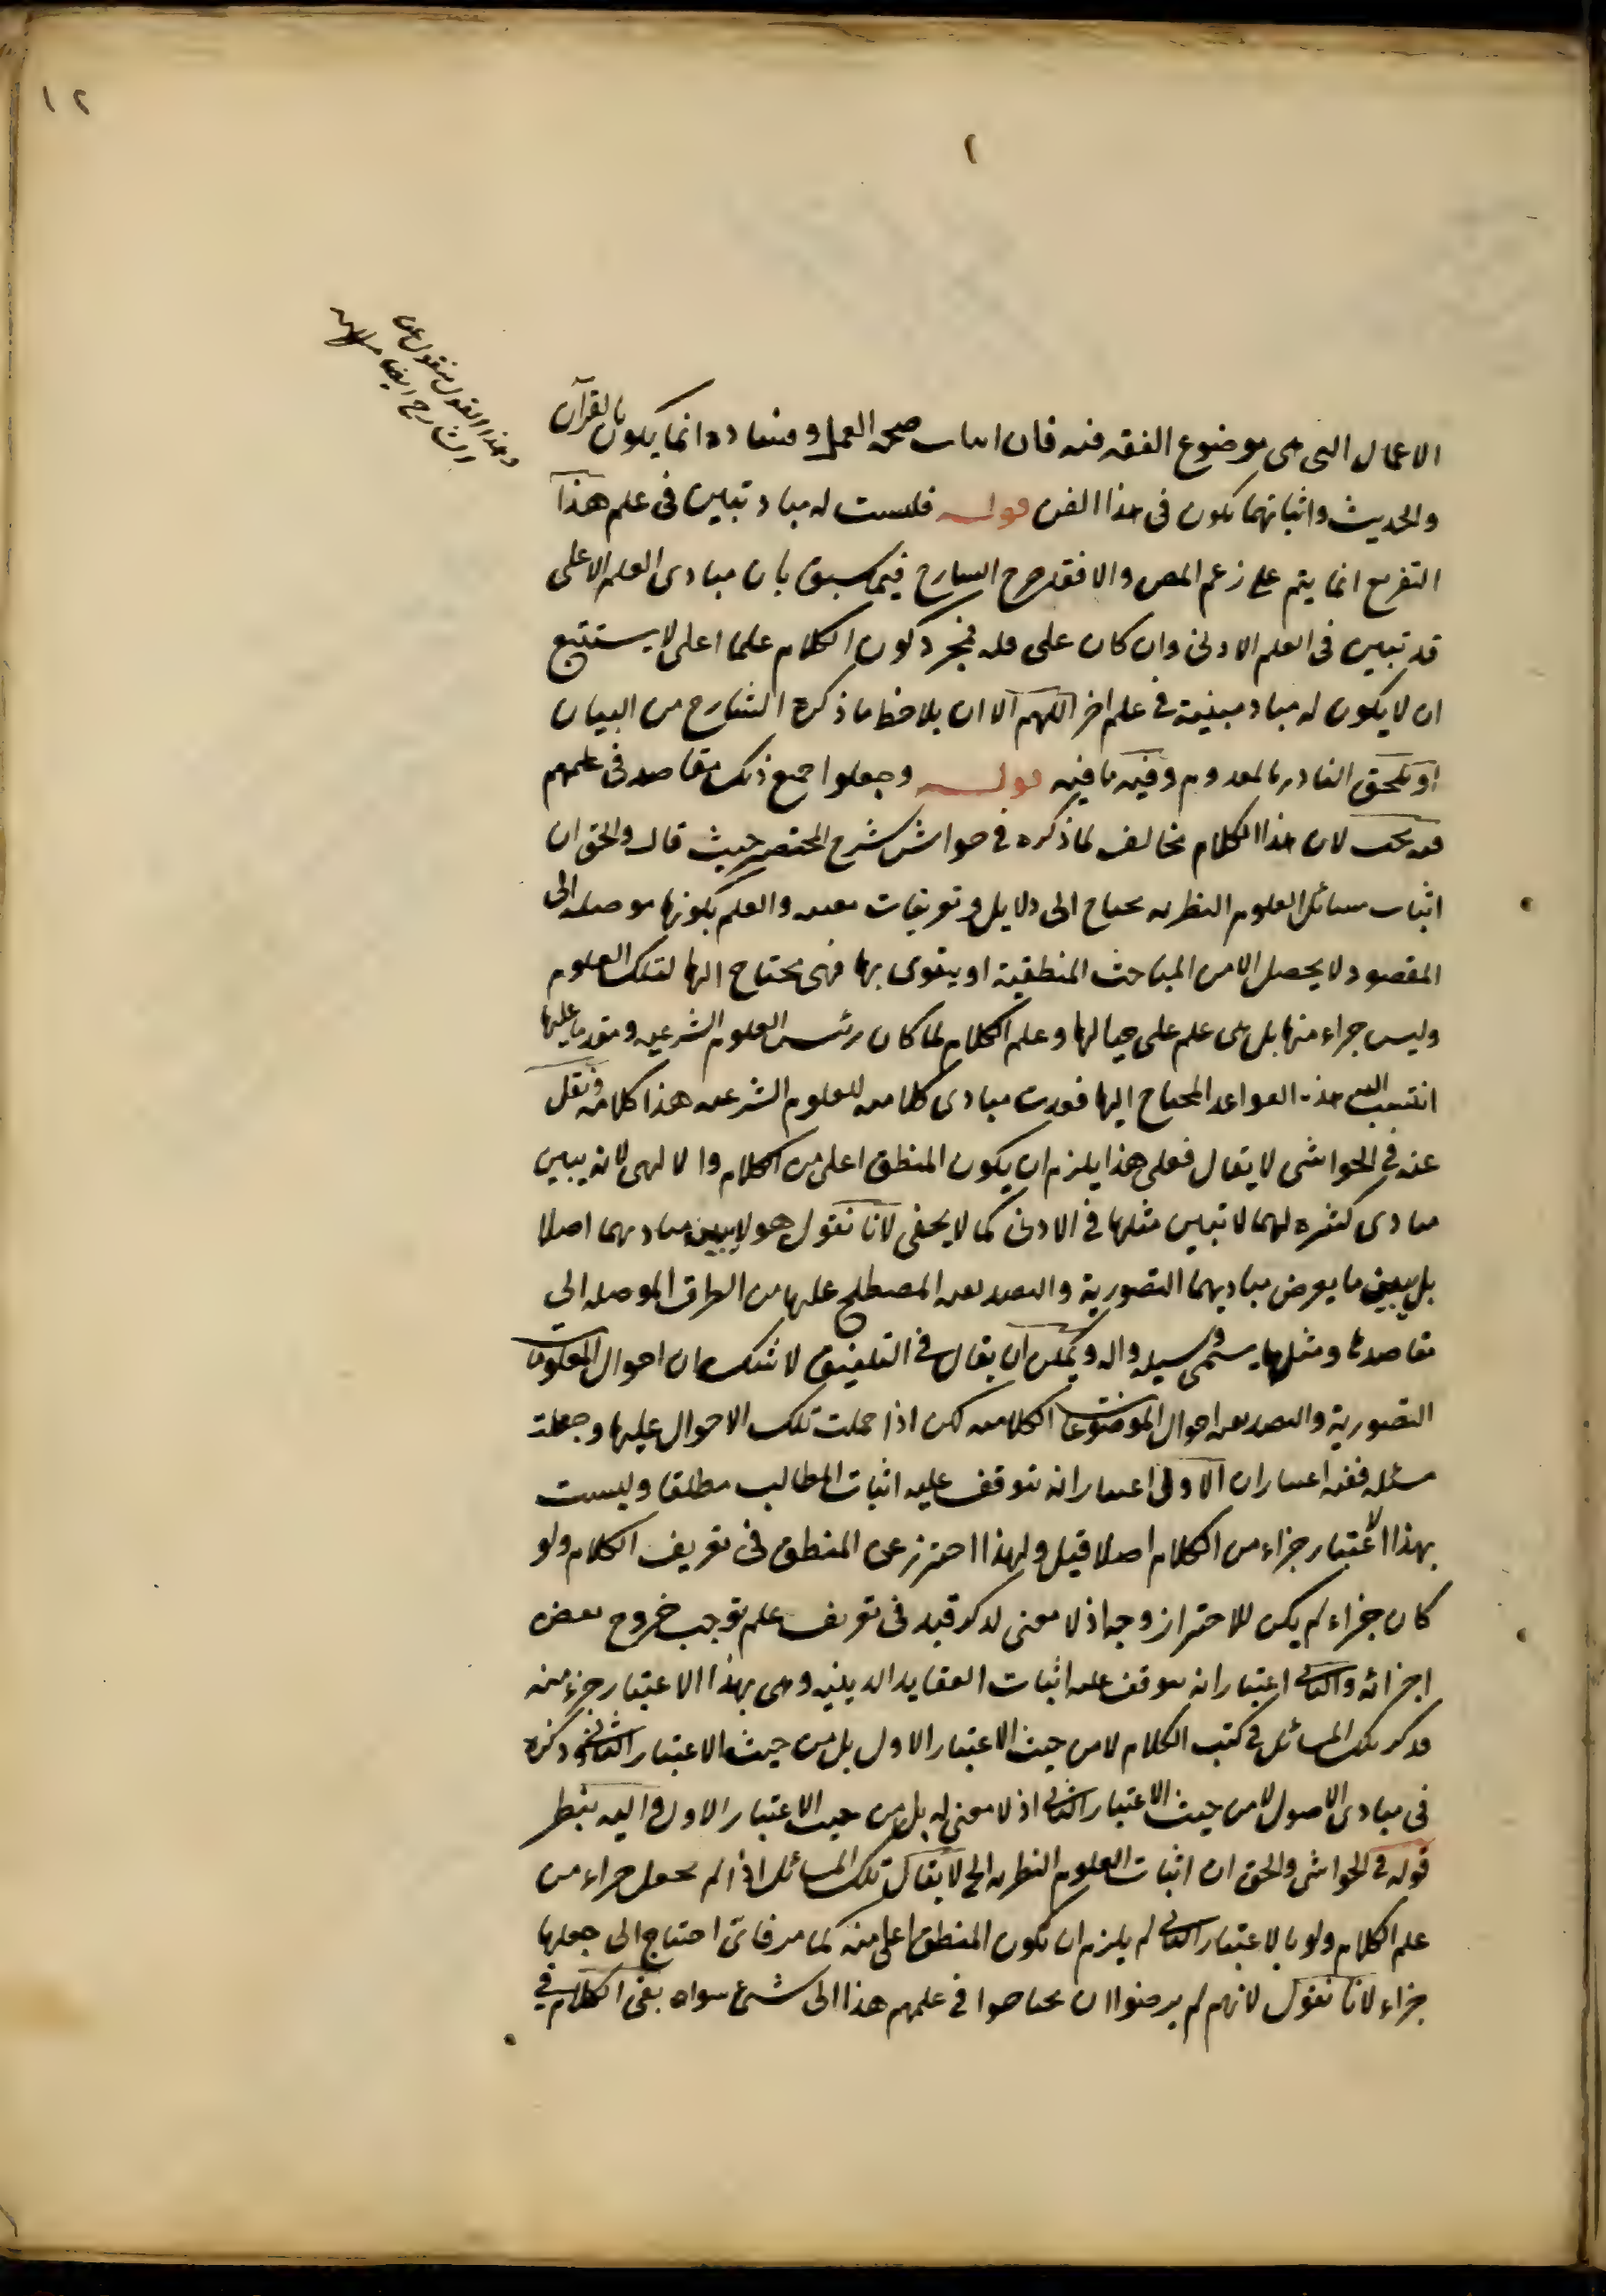 ١٢
١
الاعمال التى هى موضوع الفقه فيه فان اثبات صحة العمل وفساده انما يكون بالقرآن
والحديث واثباتهما يكون فى هذا الفن قوله فليست له مباد تبين فى علم هذا
التفريع انما يتم على زعم المص والا فقد صرح الشارح فيما سبق بان مبادى العلم الاعلى
قد تبين فى العلم الادنى وان كان على قلة فمجرد كون الكلام علما اعلى لا يستتبع
ان لا يكون له مباد مبينة فى علم اخر اللهم الا ان يلاحظ ما ذكره الشارح من البيان
او يلحق النادر بالمعدوم وفيه ما فيه قوله وجعلوا جميع ذلك مقاصد فى علمهم
فيه بحث لان هذا الكلام مخالف لما ذكره فى حواشى شرح المختصر حيث قال والحق ان
اثبات مسائل العلوم النظرية يحتاج الى دلايل وتعريفات معينة والعلم بكونها موصلة الى
المقصود لا يحصل الا من المباحث المنطقية او يتقوى بها فهى محتاج اليها لتلك العلوم
وليس جزاء منها بل هى علم على حيالها وعلم الكلام لما كان رئيس العلوم الشرعية ومقدما عليها
انتسب اليه هذه القواعد المحتاج اليها فعدت مبادى كلامية للعلوم الشرعية هذا كلامه ونقل
عنه فى الحواشى لا يقال فعلى هذا يلزم ان يكون المنطق اعلى من الكلام والالهى لانه يبين
مبادى كثيرة لهما لا تبين مثلها فى الادنى كما لا يخفى لانا نقول هو لا يبين مباديهما اصلا
بل يبين ما يعرض مباديهما التصورية والتصديقية المصطلح عليها من الطرق الموصلة الى
مقاصدها ومثلها يسمى وسيلة وآلة ويمكن ان يقال فى التلفيق لا شك ان احوال المعلومات
التصورية والتصديقية احوال الموضوعات الكلامية لكن اذا حملت تلك الاحوال عليها وجعلت
مسئلة ففيه اعتباران الاول اعتبار انه يتوقف عليه اثبات المطالب مطلقا وليست
بهذا الاعتبار جزاء من الكلام اصلا قيل ولهذا احترز عن المنطق فى تعريف الكلام ولو
كان جزاء لم يكن للاحتراز وجه اذ لا معنى لذكر قيد فى تعريف علم يوجب خروج بعض
اجزائه والثانى اعتبار انه يتوقف عليه اثبات العقايد الدينية وهى بهذا الاعتبار جزء منه
فذكر تلك المسائل فى كتب الكلام لا من حيث الاعتبار الاول بل من حيث الاعتبار الثانى وذكره
فى مبادى الاصول لا من حيث الاعتبار الثانى اذ لا معنى له بل من حيث الاعتبار الاول واليه ينظر
قوله فى الحواشى والحق ان اثبات العلوم النظرية الخ لا يقال تلك المسائل اذا لم يجعل جزاء من
علم الكلام ولو بالاعتبار الثانى لم يلزم ان يكون المنطق اعلى منه كما مر فاى احتياج الى جعلها
جزاء لانا نقول لانهم لم يرضوا ان يحتاجوا فى علمهم هذا الى شئ سواه بقى الكلام فى
وهذا القول منقول عن
الشارح ايضا